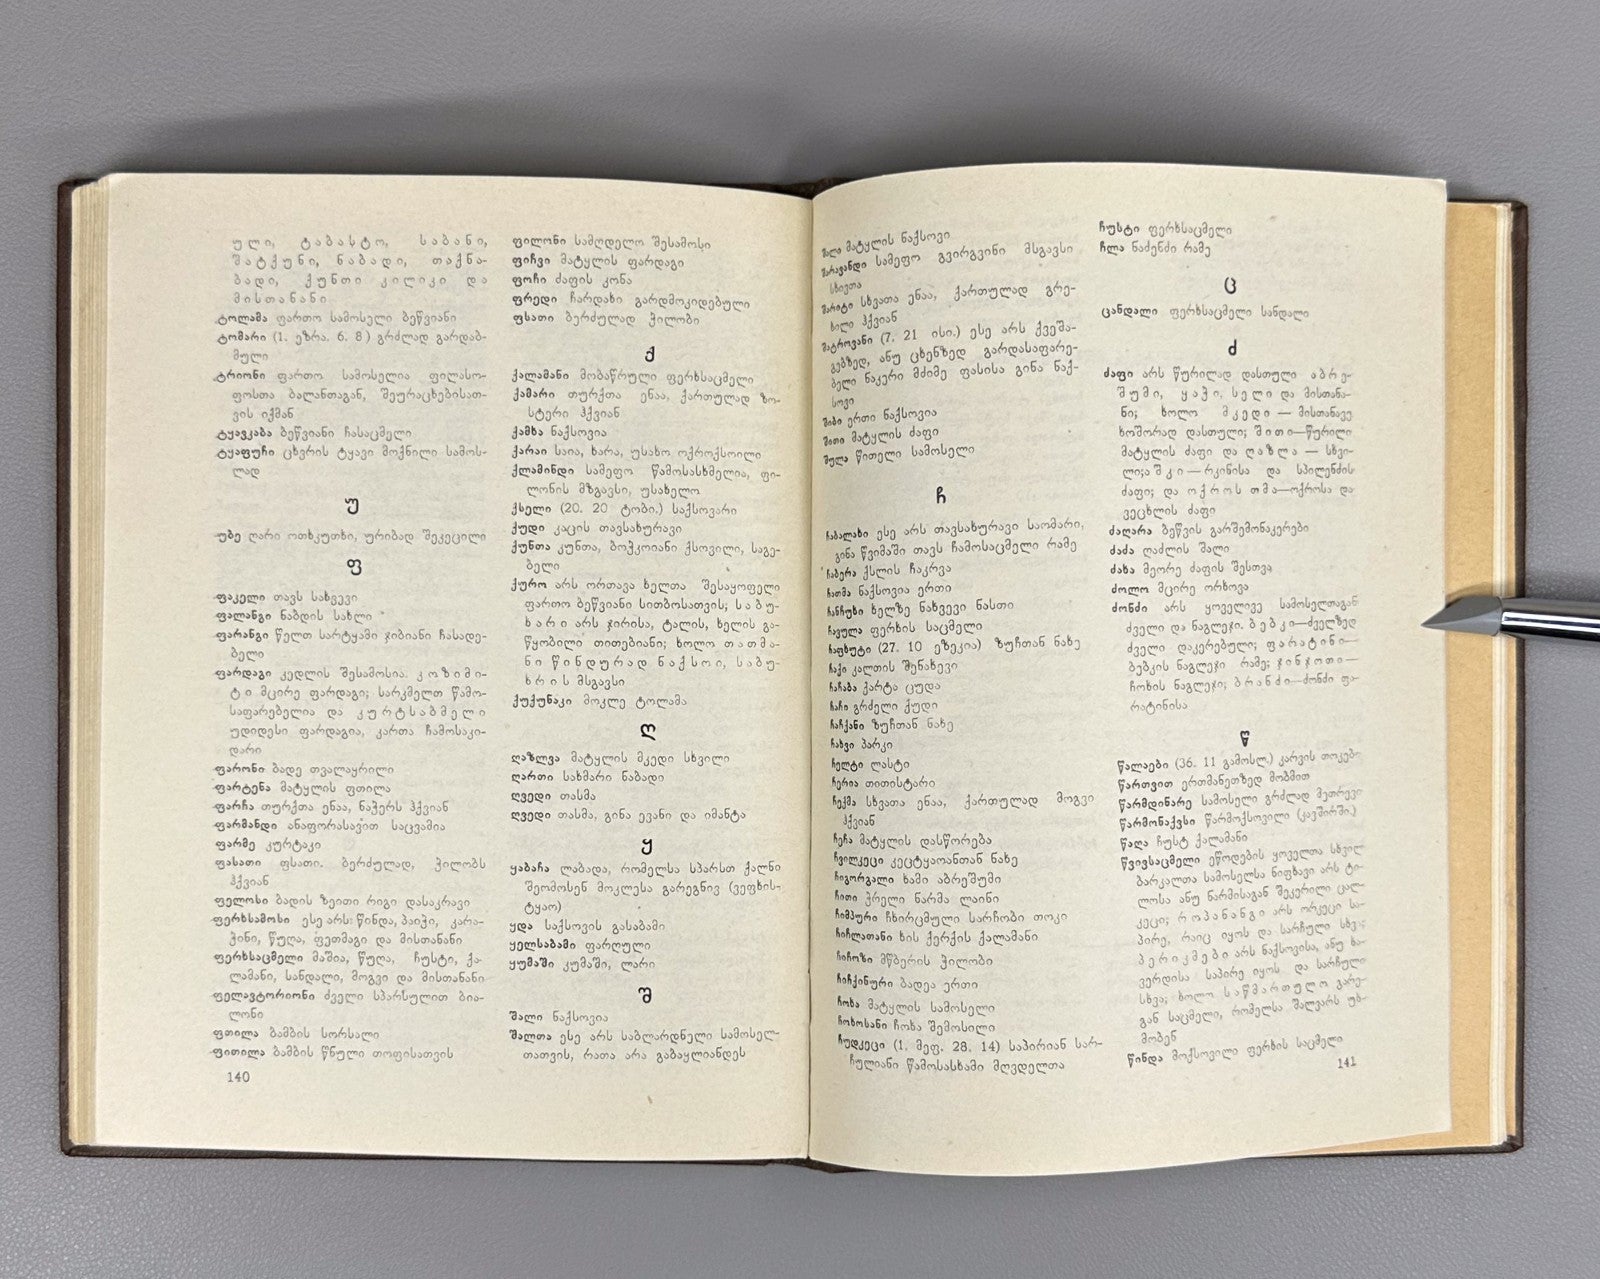 ული, ტაბასტო, საბანი,
შატქუნი, ნაბადი, თაქნა-
ბადი, ქუნთი კილიკი და
მისთანანი
ტოლამა ფართო სამოსელი ბეწვიანი
ტომარი (1. ეზრა. 6. 8) გრძლად გარდაბ-
მული
ტრიონი ფართო სამოსელია ფილასო-
ფოსთა ბალანთაგან, შეურაცხებისათ-
ვის იქმან
ტყავკაბა ბეწვიანი ჩასაცმელი
ტყაფუჩი ცხვრის ტყავი მოქნილი სამოს-
ლად
უ
უბე ღარი ოთხკუთხი, ურიბად შეკეცილი
ფ
ფაკელი თავს სახვევი
ფალანგი ნაბდის სახლი
ფარანგი წელთ სარტყამი ჯიბიანი ჩასადე-
ბელი
ფარდაგი კედლის შესამოსია. კოზიმი-
ტი მცირე ფარდაგი; სარკმელთ წამო-
საფარებელია და კურტსაბმელი
უდიდესი ფარდაგია, კართა ჩამოსაკი-
დარი
ფარონი ბადე თვალაყრილი
ფარტენა მატყლის ფთილა
ფარჩა თურქთა ენაა, ნაჭერს ჰქვიან
ფარმანდი ანაფორასავით საცვამია
ფარმე კურტაკი
ფასათი ფსათი. ბერძულად, ჭილობს
ჰქვიან
ფელოსი ბადის ზეითი რიგი დასაკრავი
ფერხსამოსი ესე არს: წინდა, პაიჭი, კარა-
ჭინი, წუღა, ფეთმაგი და მისთანანი
ფერხსაცმელი მაშია, წუღა, ჩუსტი, ქა-
ლამანი, სანდალი, მოგვი და მისთანანი
ფელავტორიონი ძველი სპარსულით ბია-
ლონი
ფთილა ბამბის სორსალი
ფითილა ბამბის წნული თოფისათვის
140
ფილონი სამღდელო შესამოსი
ფიჩვი მატყლის ფარდაგი
ფოჩი ძაფის კონა
ფრედი ჩარდახი გარდმოკიდებული
ფსათი ბერძულად ჭილობი
ქ
ქალამანი მობაწრული ფერხსაცმელი
ქამარი თურქთა ენაა, ქართულად ზო-
სტერი ჰქვიან
ქამხა ნაქსოვია
ქარაი საია, ხარა, უსახო ოქროქსოილი
ქლამინდი სამეფო წამოსასხმელია, ფი-
ლონის მზგავსი, უსახელო
ქსელი (20. 20 ტობი.) საქსოვარი
ქუდი კაცის თავსახურავი
ქუნთა კუნთა, ბოჭკოიანი ქსოვილი, საგე-
ბელი
ქურო არს ორთავა ხელთა შესაყოფელი
ფართო ბეწვიანი სითბოსათვის; საბუ-
ხარი არს ჯირისა, ტალის, ხელის გა-
წყობილი თითებიანი; ხოლო თათმა-
ნი წინდურად ნაქსოი, საბუ-
ხრის მსგავსი
ქუქუნაკი მოკლე ტოლამა
ღ
ღაზლვა მატყლის მკედი სხვილი
ღართი სახმარი ნაბადი
ღვედი თასმა
ღვედი თასმა, გინა ევანი და იმანტა
ყ
ყაბაჩა ლაბადა, რომელსა სპარსთ ქალნი
შეომოსენ მოკლესა გარეგნივ (ვეფხის-
ტყაო)
ყდა საქსოვის გასაბამი
ყელსაბამი ფარღული
ყუმაში კუმაში, ლარი
შ
შალი ნაქსოვია
შალთა ესე არს საბლარდნელი სამოსელ-
თათვის, რათა არა გაბაყლიანდეს
შალა მატყლის ნაქსოვი
შარავანდი სამეფო გვირგვინი მსგავსი
სხივთა
შარიტი სხვათა ენაა, ქართულად გრე-
ხილი ჰქვიან
შატროვანი (7. 21 ისი.) ესე არს ქვეშა-
გებზედ, ანუ ცხენზედ გარდასაფარე-
ბელი ნაკერი მძიმე ფასისა გინა ნაქ-
სოვი
შიბი ერთი ნაქსოვია
შითი მატყლის ძაფი
შულა წითელი სამოსელი
ჩ
ჩაბალახი ესე არს თავსახურავი საომარი,
გინა წვიმაში თავს ჩამოსაცმელი რამე
ჩაბერა ქსლის ჩაკრვა
ჩათმა ნაქსოვია ერთი
ჩანჩუხი ხელზე ნახვევი ნასთი
ჩავულა ფერხის საცმელი
ჩაფხუტი (27. 10 ეზეკია) ზუჩთან ნახე
ჩაქი კალთის შენახევი
ჩაჩაბა ქარტა ცუდა
ჩაჩი გრძელი ქუდი
ჩაჩქანი ზუჩთან ნახე
ჩახვი პარკი
ჩელტი ლასტი
ჩერია თითისტარი
ჩექმა სხვათა ენაა, ქართულად მოგვი
ჰქვიან
ჩეჩა მატყლის დასწორება
ჩვილკეცი კეცტყაოანთან ნახე
ჩიგორგალი ხამი აბრეშუმი
ჩითი ჭრელი ნარმა ლაინი
ჩიმპური ჩხირცმული სარჩობი თოკი
ჩიჩლათანი ხის ქერქის ქალამანი
ჩიჩოზი მწბერის ჭილობი
ჩიჩქინური ბადეა ერთი
ჩოხა მატყლის სამოსელი
ჩოხოსანი ჩოხა შემოსილი
ჩუდკეცი (1. მეფ. 28. 14) საპირიან სარ-
ჩულიანი წამოსასხამი მღვდელთა
ჩუსტი ფერხსაცმელი
ჩლა ნაძენძი რამე
ც
ცანდალი ფერხსაცმელი სანდალი
ძ
ძაფი არს წურილად დასთული აბრე-
შუმი, ყაჭი, სელი და მისთანა-
ნი; ხოლო მკედი — მისთანავე
ხოშორად დასთული; შითი—წურილი
მატყლის ძაფი და ღაზლა — სხვი-
ლი; აშკი — რკინისა და სპილენძის
ძაფი; და ოქროსთმა—ოქროსა და
ვეცხლის ძაფი
ძაღარა ბეწვის გარშემონაკერები
ძაძა ღაძლის შალი
ძახა მეორე ძაფის შესთვა
ძოლო მცირე ორხოვა
ძონძი არს ყოველივე სამოსელთაგან
ძველი და ნაგლეჯი. ბებკი—ძველზედ
ძველი დაკერებული; ფარატინი—
ბებკის ნაგლეჯი რამე; ჯინჯოთი—
ჩოხის ნაგლეჯი; ბრანძი—ძონძი ფა-
რატინისა
წ
წალაები (36. 11 გამოსლ.) კარვის თოკებ-
წართვით ერთმანეთზედ მობმით
წარმდინარე სამოსელი გრძლად მეთრევი
წარმონაქვსი წარმოქსოვილი (კავშირში.)
წაღა ჩუსტ ქალამანი
წვივსაცმელი ეწოდების ყოველთა სხვილ
ბარკალთა სამოსელსა ნიფხავი არს ტი-
ლოსა ანუ ნარმისაგან შეკერილი ცალ-
კეცი; როპანანგი არს ორკეცი სა-
პირე, რაიც იყოს და სარჩული სხვა;
პერიკმები არს ნაქსოვისა, ანუ ხა-
ვერდისა საპირე იყოს და სარჩული
სხვა; ხოლო საწმართულო გარე-
გან საცმელი, რომელსა შალვარს უხ-
მობენ
წინდა მოქსოვილი ფერხის საცმელი
141